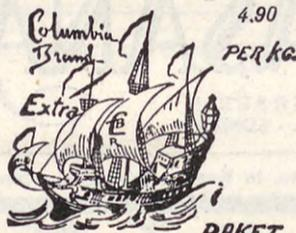 Columbia
Brand
Extra
4.90
PER KG.
i
PAKET